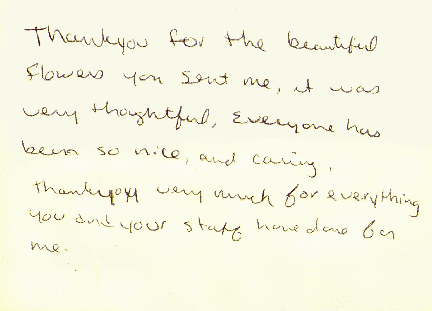 Thankyou for the beautiful
flowers you sent me, it was
very thoughtful, Everyone has
been so nice, and caring,
thankyou very much for everything
you and your staff have done for
me.